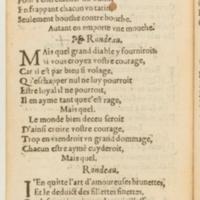 En frappant chacun vn tatin
Seulement bouche contre bouche.
Autant en emporte vne mouche.
Rondeau.
Mais quel grand diable y fourniroit
si vous croyez vostre courage,
Car il est par bieu si volage,
Qu'eschapper nul ne luy pourroit
Estre loyal il ne pourroit,
Il en ayme tant que c'est rage,
Mais quel.
Le monde bien deceu seroit
D'ainsi croire vostre courage,
Trop en viendroit vn grand dommage,
Chacun estre aymé cuyderoit,
Mais quel.
Rondeau.
I'En quitte l'art d'amoureuses brunettes,
Et le deduict des fillettes finettes,